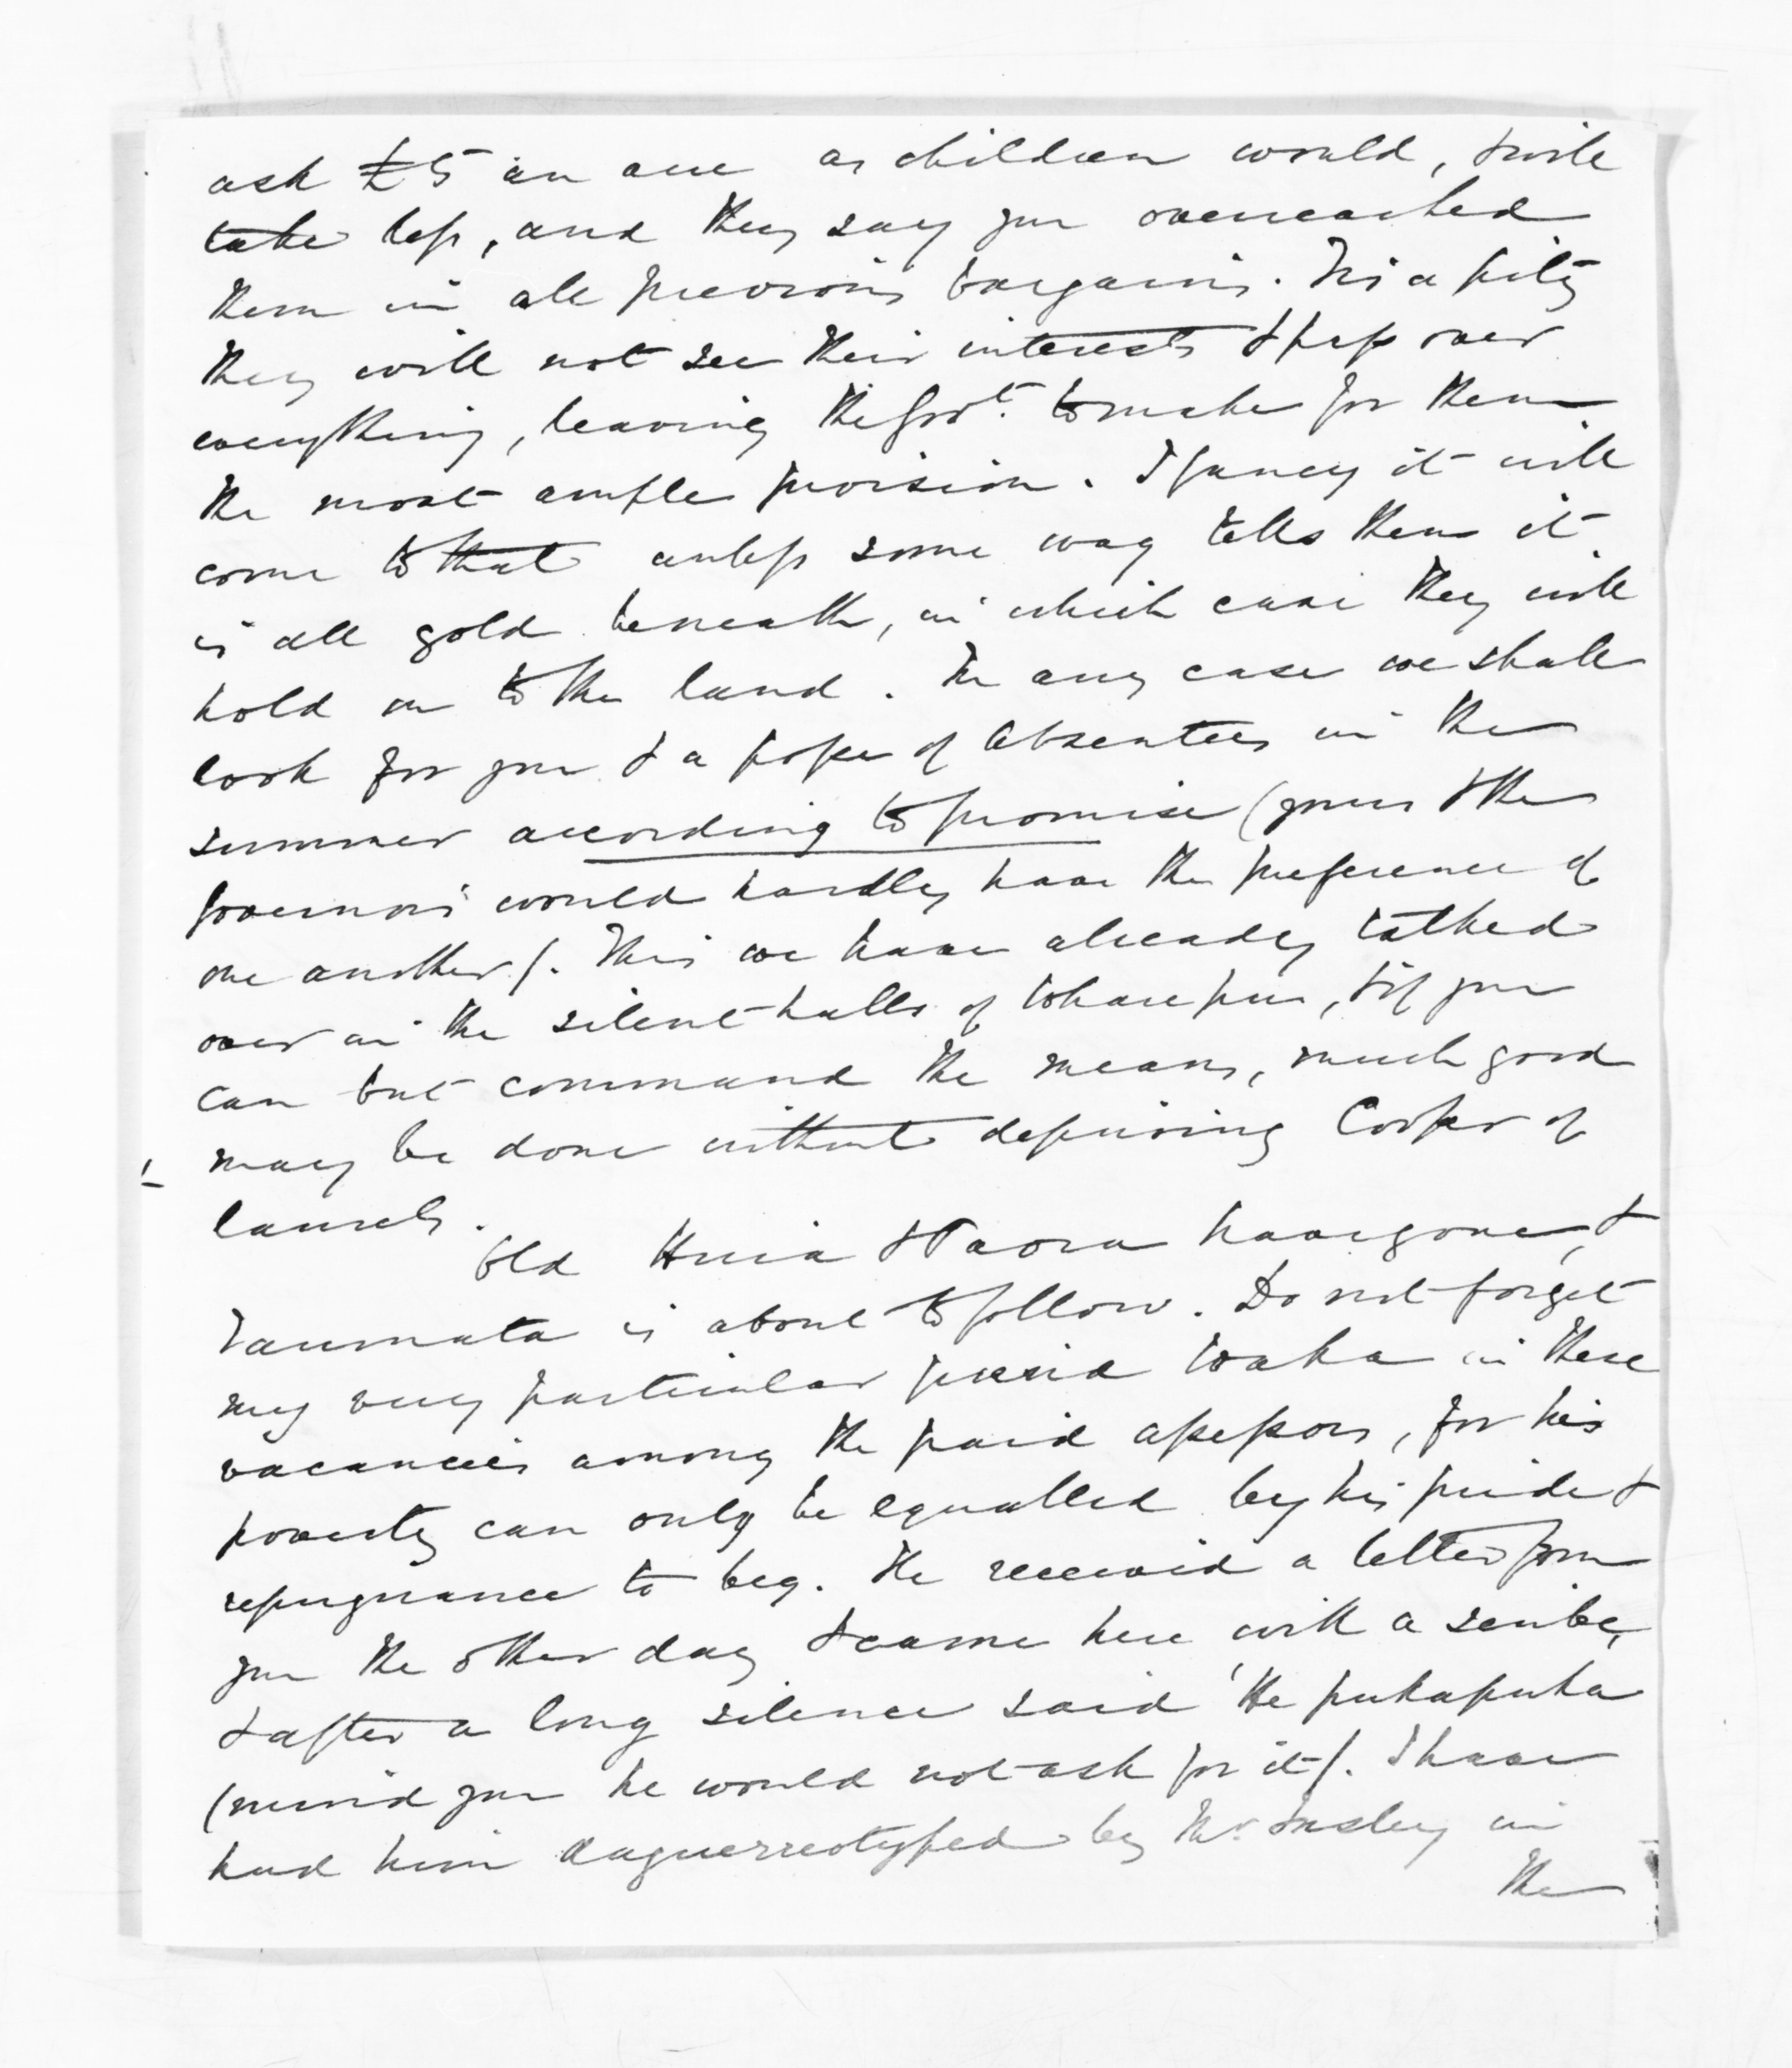 ask £5 an acre as children would, & will
take less, and they say you overreached
them in all previous bargains. Tis a pity
they will not see their interests & pass over
everything, leaving the Govt. to make for them
the most ample provision. I fancy it will
come to that unless some wag tells them it
is all gold beneath, in which case they will
hold on to the land. In any case we shall
look for you & a posse of Absentees in the
summer according to promise (yours & the
Governors would hardly have the preference of
one another). This we have already talked
over in the silent halls of Wharepu, & if you
can but command the means, much good
may be done without depriving Cooper of
laurels.
Old Huia & Paora have gone, &
Taumata is about to follow. Do not forget
my very particular friend Waka in these
vacancies among the paid assessors, for his
poverty can only be equalled by his pride &
repugnance to beg. He received a letter from
you the other day & came here with a scribe,
& after a long silence said 'He pukapuka
(mind you he would not ask for it). I have
had him daguerreotyped by Mr. Insley in
the